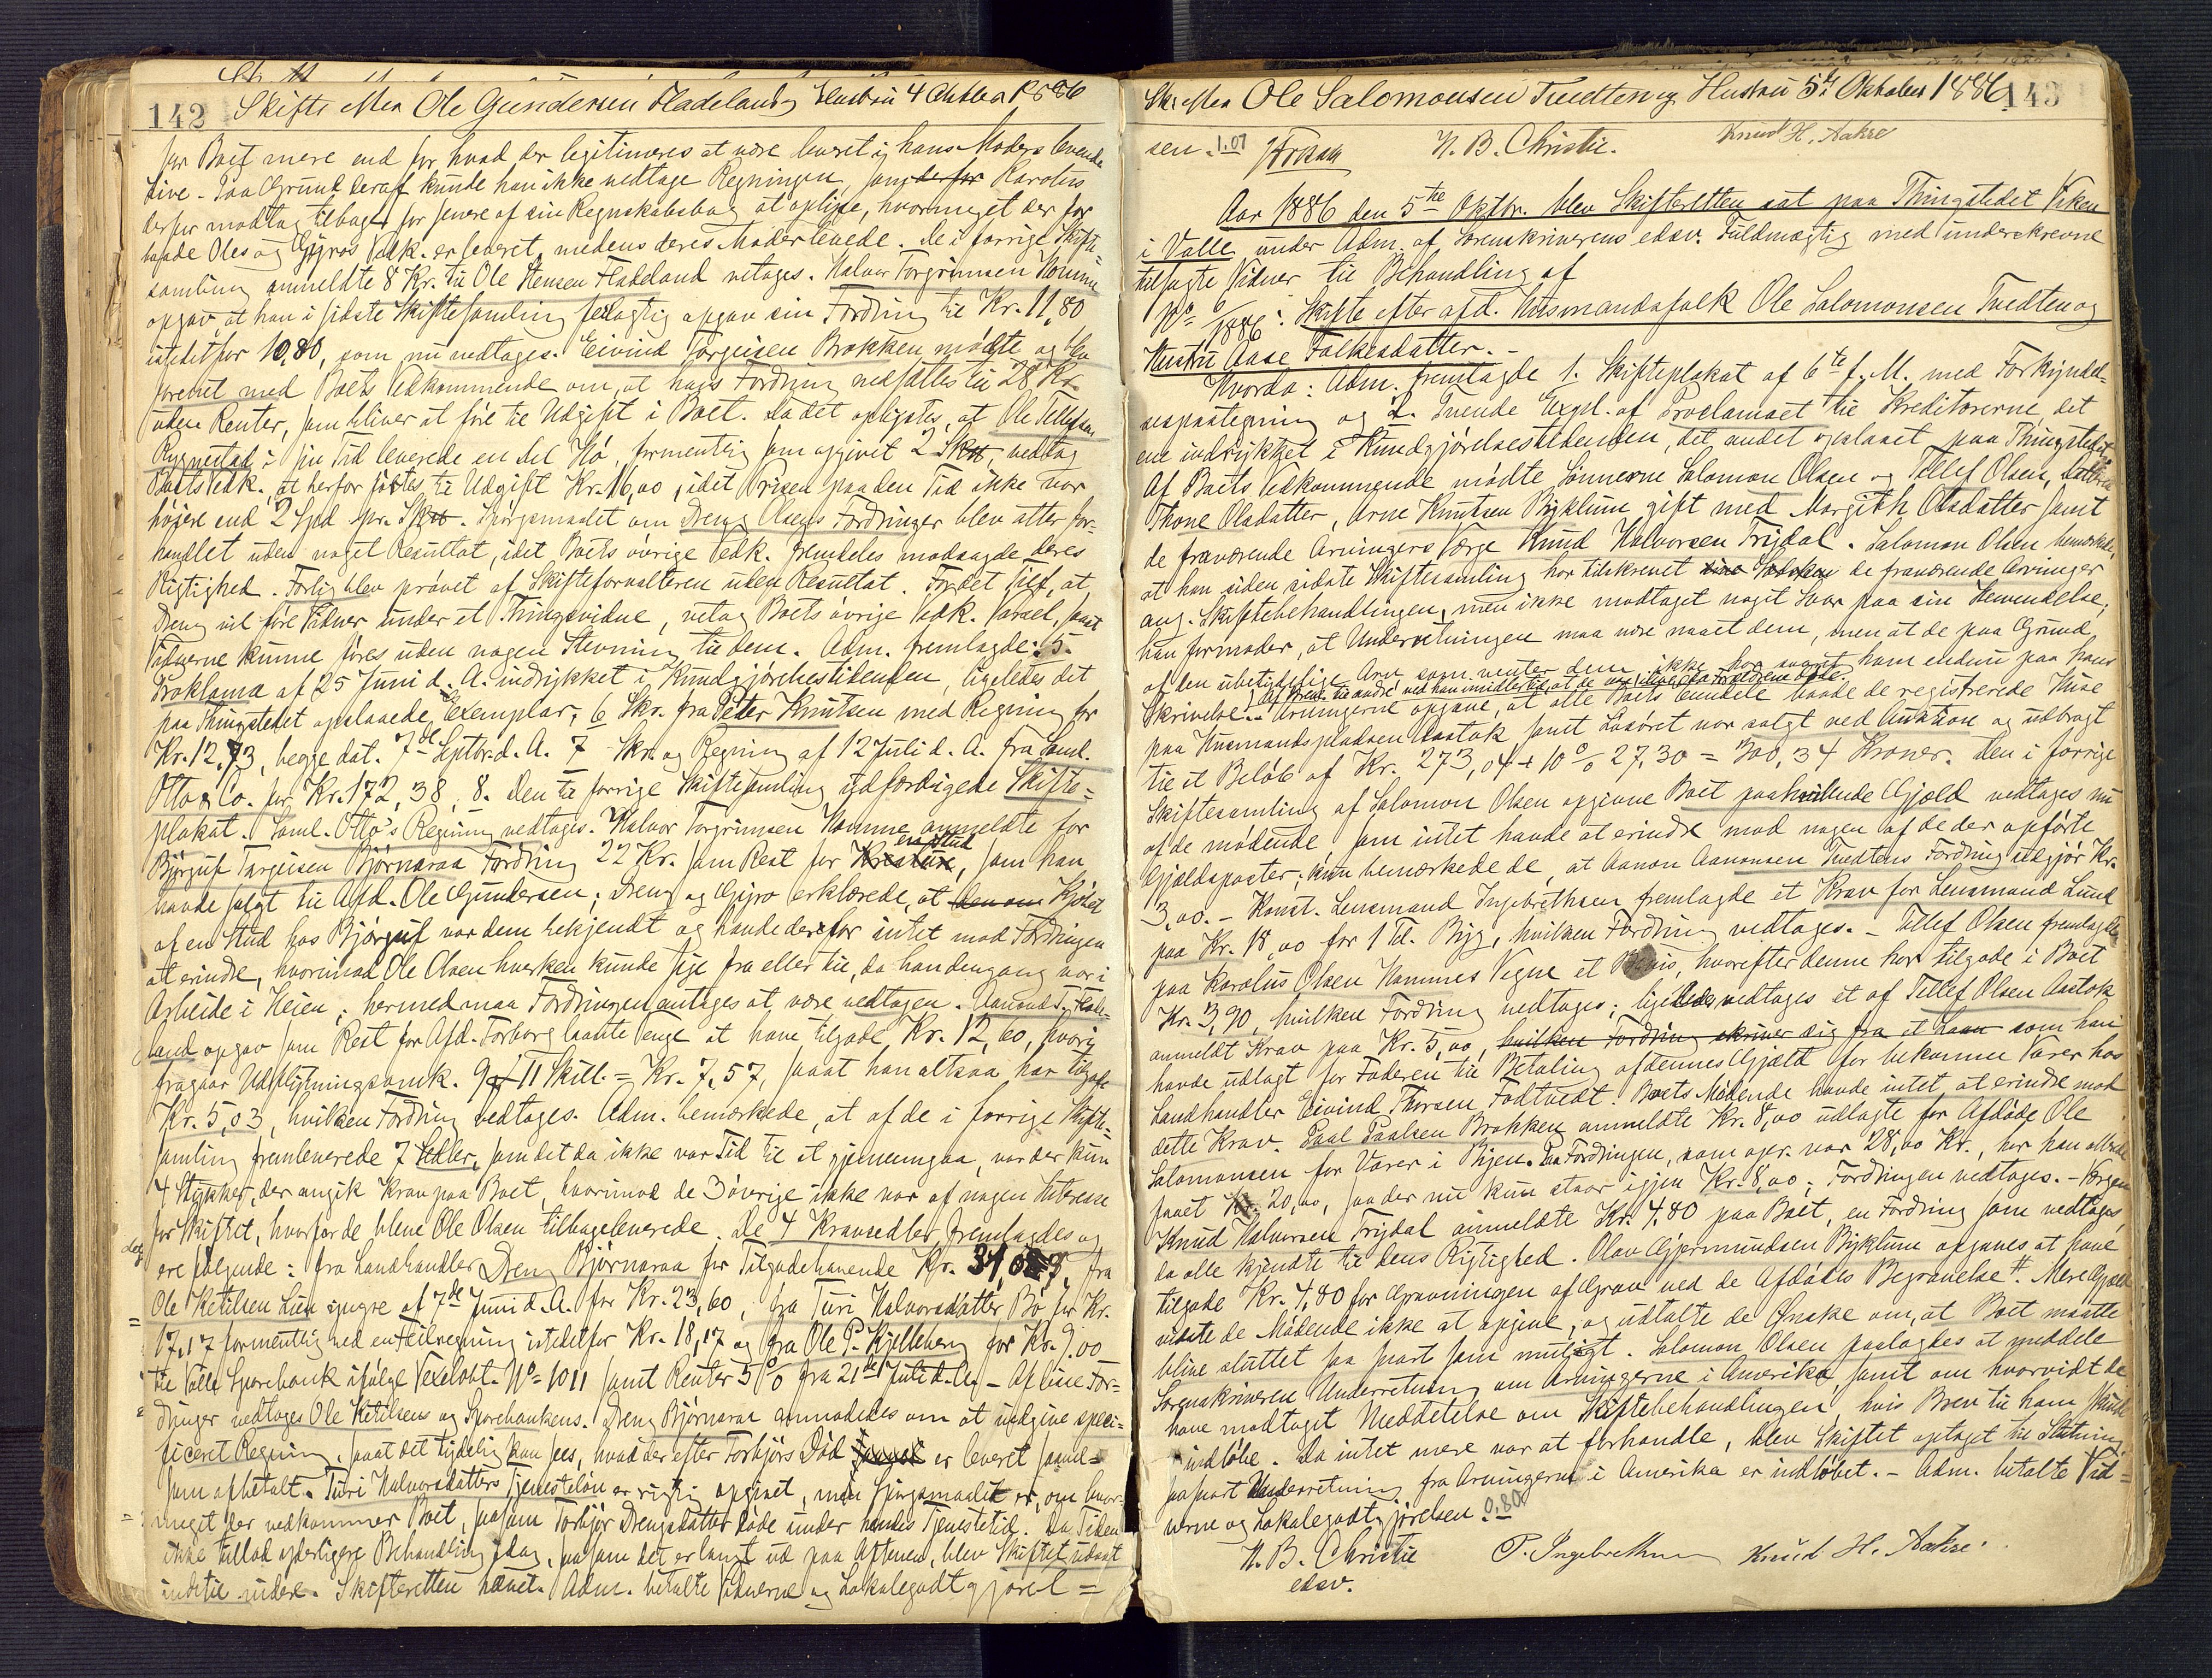 142 Skifte efter Ole Gundersen Fladeland og Hustru 4 Oktober 1886
for Boet mere end for hvad der legitimeres at være leveret i hans Moders levende
Live. Paa Grund deraf kunde han ikke vedtage Regningen, som derfor Karolus
derfor modtog tilbage for senere af sin Regnskabsbog at oplyse, hvormeget der for
baade Oles og Gyros Vedk. er leveret, medens deres Moder levede. De i forrige Skifte-
samling anmeldte 8 Kr. til Ole Hensen Fladeland vetages. Halvor Torgrimsen Homme
opgav, at han i sidste Skiftesamling feilagtig opgav sin Fordring til Kr. 11,80
istedetfor 10,80, som nu vedtages. Eivind Torgeisen Brokken mødte og blev
forenet med Boets Vedkommende om, at hans Fordring nedsattes til 28 Kr.
uden Renter, som bliver at føre til Udgift i Boet. Da det oplystes, at Ole Tellefsen
Rygnestad i sin Tid leverede en del Hø, formentlig som opgivet 2 Sk℔, vedtog
Boets Vedk., at herfor føites til Udgift Kr. 16,00, idet Prisen paa den Tid ikke var
høiere end 2 Spd pr. Sk℔. Spørgsmaalet om Dreng Olsens Fordringer blev atter for-
handlet uden noget Resultat, idet Boets øvrige Vedk. fremdeles modsagde deres
Rigtighed. Forlig blev prøvet af Skifteforvalteren uden Resultat. Fordet Tilf., at
Dreng vil føre Vidner under et Thingsvidne, vetog Boets øvrige Vedk. Varsel, samt
Vidnerne kunne føres uden nogen Stevning til dem. Adm. fremlagde: 5.
Proklama af 25 Juni d. A. indrykket i Kundgjørelsestidenden, ligeledes det
paa Thingstedet opslaaede Exemplar; 6 Skr. fra Peter Knutsen med Regning for
Kr. 12,73, begge dat. 7de Septbr. d. A. 7 Skr. og Regning af 12 Juli d. A. fra Saml.
Otto & Co. for Kr. 172,38, 8. Den til forrige Skiftesamling udfærdigede Skifte-
plakat. Saml. Otto's Regning vedtages. Halvor Torgrimsen Homme anmeldte for
Bjørguf Targeisen Bjørnaraa Fordring 22 Kr. som Rest for en Stud, som han
havde solgt til Afd. Ole Gundersen; Dreng og Gyro erklærede, at den om Kjøbet
af en Stud hos Bjørguf var dem bekjendt og havde derfor intet mod Fordringen
at erindre, hvorimod Ole Olsen hverken kunde sige fra eller til, da han dengang var i
Arbeide i Heien; hermed maa Fordringen antages at være vedtagen. Aanund T. Flade-
land opgav som Rest for Afd. Torborg laante Penge at have tilgode Kr. 12,60, hvori
fragaar Udskiftningsomk. 9 ₰ 11 Skill. = Kr. 7,57, saaat han altsaa har tilgode
Kr. 5,03, hvilken Fordring vedtages. Adm. bemærkede, at af de i forrige Skifte-
samling fremleverede 7 Sedler, som det da ikke var Tid til at gjennemgaa, var der kun
4 Stykker, der angik Krav paa Boet, hvorimod de 3 øvrige ikke var af nogen Interesse
for Skiftet, hvorfor de bleve Ole Olsen tilbageleverede. De 4 Kravsedler fremlagdes og
ere følgende: fra Landhandler Dreng Bjørnaraa for Tilgodehavende Kr. 34,03, fra
Ole Ketilsen Lien yngre af 7de Juni d. A. for Kr. 23,60, fra Turi Halvorsdatter Bø for Kr.
17,17 formentlig ved en Feilregning istedetfor Kr. 18,17 og fra Ole P. Kjelleberg for Kr. 9,00
til Valle Sparebank ifølge Vexelobl. No 1011 samt Renter 5 % fra 21de Juli d. A. – Af disse For-
dringer vedtages Ole Ketilsens og Sparebankens. Dreng Bjørnaraa anmodedes om at indgive speci-
ficeret Regning, saaat det tydelig kan sees, hvad der efter Torbjørs Død er leveret saavel
som afbetalt. Turi Halvorsdatters Tjenesteløn er rigtig opgivet, men Spørgsmaalet er, om hvor-
meget der vedkommer Boet, saasom Torbjør Drengsdatter døde under hendes Tjenestetid. Da Tiden
ikke tillod yderligere Behandling idag, saasom det er langt ud paa Aftenen, blev Skiftet udsat
indtil videre. Skifteretten hævet. Adm. betalte Vidnerne og Lokalegodtgjørel-
Sk. efter Ole Salomonsen Tvedten og Hustru 5te Oktober 1886 143
sen. 1.07 N. B. Christie. Knud H. Aakre
Aar 1886 den 5te Oktbr. blev Skifteretten sat paa Thingstedet Viken
i Valle under Adm. af Sorenskriverens edsv. Fuldmægtig med underskrevne
tilsagte Vidner til Behandling af
No 6/1886: Skifte efter afd. Husmandsfolk Ole Salomonsen Tvedten og
Hustru Aase Folkesdatter. –
Hvorda: Adm. fremlagde 1. Skifteplakat af 6te f. M. med Forkyndel-
sespaategning og 2. Tvende Expl. af Proclamaet til Kreditorerne, det
ene indrykket i Kundgjørelsestidenden, det andet opslaaet paa Thingstedet.
Af Boets Vedkommende mødte Sønnerne Salomon Olsen og Tellef Olsen, Datteren
Thone Olsdatter, Arne Knutsen Byklum gift med Margith Olsdatter samt
de fraværende Arvingers Værge Knud Halvorsen Trydal. Salomon Olsen bemærkede,
at han siden sidste Skiftesamling har tilskrevet de fraværende Arvinger
ang. Skiftebehandlingen, men ikke modtaget noget Svar paa sin Henvendelse;
han formoder, at Underretningen maa være naaet dem, men at de paa Grund
af den ubetydelige Arv, som venter dem, ikke har svaret ham endnu paa hans
Skrivelse. Af Brev til andre ved han imidlertid, at de var ilive da Forældrene døde.
Arvingerne opgave, at alle Boets Eiendele baade de registrerede Huse
paa Husmandspladsen Aastøk samt Løsøret var solgt ved Auktion og udbragt
til et Beløb af Kr. 273,04 + 10 % 27,30 = 300,34 Kroner. Den i forrige
Skiftesamling af Salomon Olsen opgivne Boet paahvilende Gjæld vedtages nu
af de mødende som intet havde at erindre mod nogen af de der opførte
Gjældsposter; kun bemærkede de, at Aanon Aanonsen Tvedtens Fordring udgjør Kr.
3,00. – Konst. Lensmand Ingebrethsen fremlagde et Krav for Lensmand Lund
paa Kr. 18,00 for 1 Td. Byg, hvilken Fordring vedtages. – Tellef Olsen fremlagde
paa Karolus Olsen Hommes Vegne et Bevis, hvorefter denne har tilgode i Boet
Kr. 3,90, hvilken Fordring vedtages; ligeledes vedtages et af Tellef Olsen Aastøk
anmeldt Krav paa Kr. 5,00, hvilken Fordring skriver sig fra et Laan som han
havde udlagt for Faderen til Betaling af dennes Gjæld for bekomne Varer hos
Landhandler Eivind Thorsen Fodtvedt. Boets Mødende havde intet at erindre mod
dette Krav. Paal Paalsen Brokken anmeldte Kr. 8,00 udlagte for Afdøde Ole
Salomonsen for Varer i Byen. Paa Fordringen, som opr. var 28,00 Kr., har han allerede
faaet Kr. 20,00, saa der nu kun staar igjen Kr. 8,00; Fordringen vedtages. – Værgen
Knud Halvorsen Trydal anmeldte Kr. 4,80 paa Boet, en Fordring som vedtages,
da alle kjendte til dens Rigtighed. Olav Gjermundsen Byklum opgaves at have
tilgode Kr. 4,80 for Gravningen af Grav ved de Afdødes Begravelse. Mere Gjæld
vidste de Mødende ikke at opgive, og udtalte de Ønske om, at Boet maatte
blive sluttet saa snart som muligt. Salomon Olsen paalagdes at meddele
Sorenskriveren Underretning om Arvingerne i Amerika, samt om hvorvidt de
have modtaget Meddelelse om Skiftebehandlingen, hvis Brev til ham skulde
indløbe. Da intet mere var at forhandle, blev Skiftet optaget til Slutning
saasnart Underretning fra Arvingerne i Amerika er indløbet. – Adm. betalte Vid-
nerne og Lokalegodtgjørelsen 0.80
N. B. Christie P. Ingebrethsen Knud H. Aakre.
edsv.